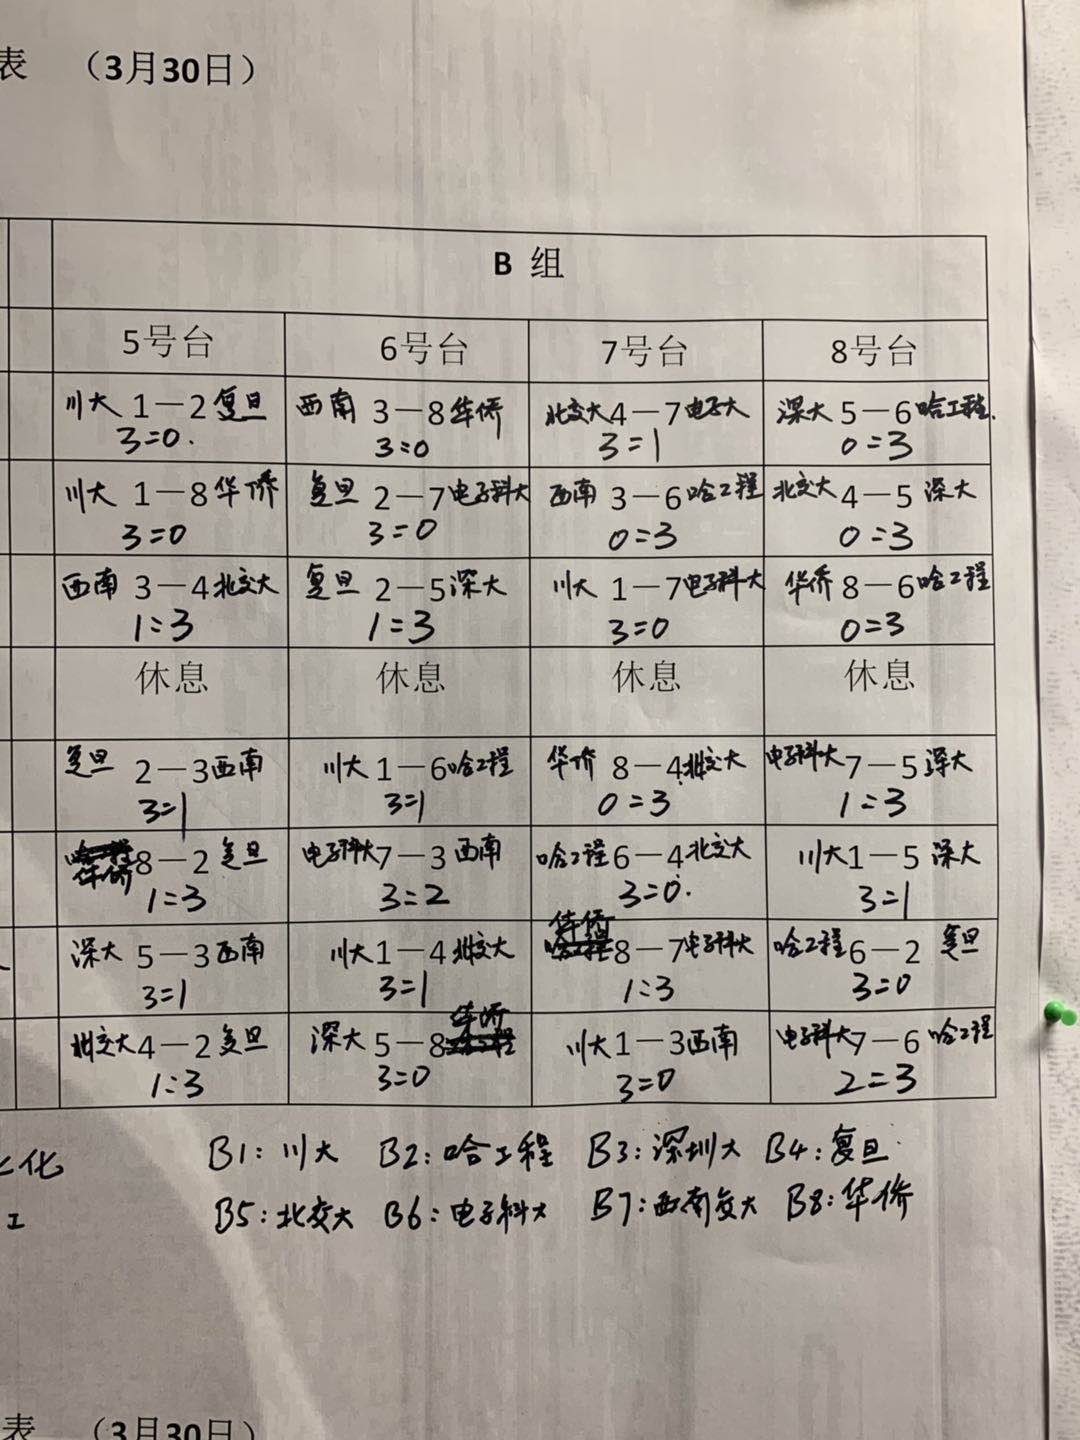 表 （3月30日）
B 组
5号台 6号台 7号台 8号台
川大 1—2 复旦 西南 3—8 华侨 北交大 4—7 电子大 深大 5—6 哈工程.
3=0. 3:0 3=1 0=3
川大 1—8 华侨 复旦 2—7 电子科大 西南 3—6 哈工程 北交大 4—5 深大
3=0 3=0 0=3 0=3
西南 3—4 北交大 复旦 2—5 深大 川大 1—7 电子科大 华侨 8—6 哈工程
1:3 1=3 3=0 0=3
休息 休息 休息 休息
复旦 2—3 西南 川大 1—6 哈工程 华侨 8—4 北交大 电子科大 7—5 深大
3=1 3=1 0=3 1=3
华侨 8—2 复旦 电子科大 7—3 西南 哈工程 6—4 北交大 川大 1—5 深大
1=3 3=2 3=0. 3=1
华侨
深大 5—3 西南 川大 1—4 北交大 8—7 电子科大 哈工程 6—2 复旦
3=1 3=1 1:3 3=0
华侨
北交大 4—2 复旦 深大 5—8 川大 1—3 西南 电子科大 7—6 哈工程
1:3 3=0 3=0 2=3
化 B1: 川大 B2: 哈工程 B3: 深圳大 B4: 复旦
工 B5: 北交大 B6: 电子科大 B7: 西南交大 B8: 华侨
表 （3月30日）